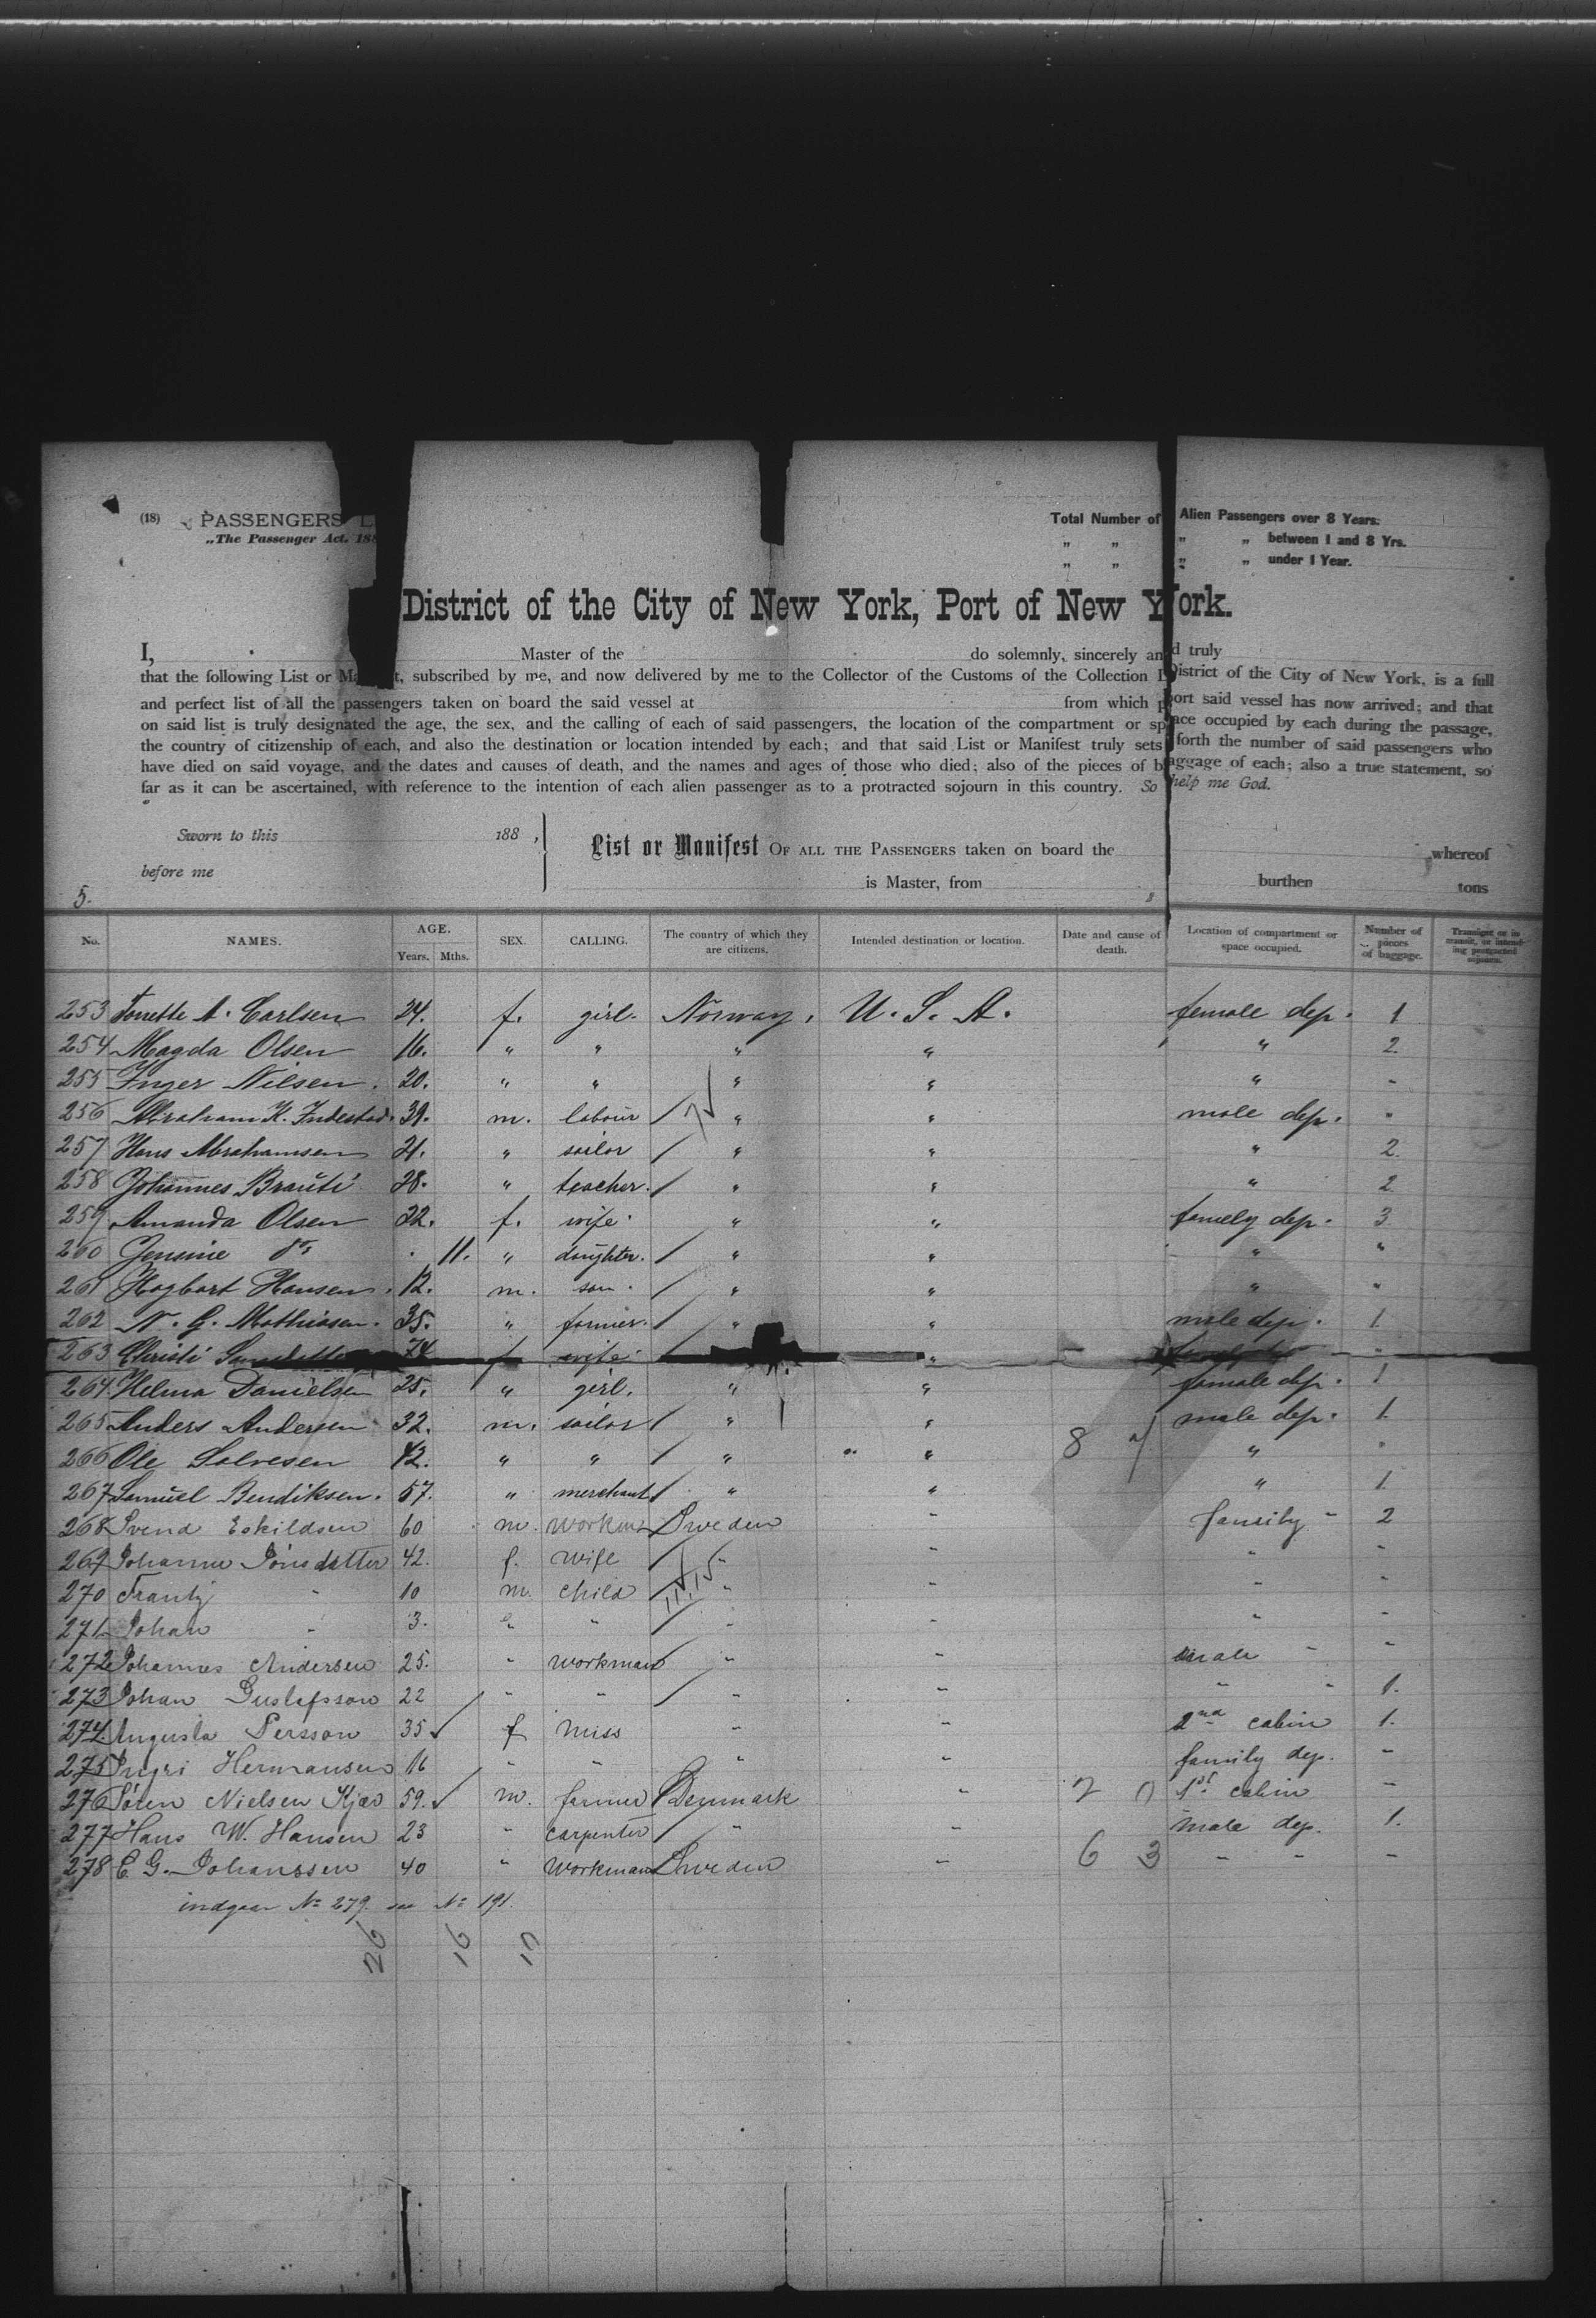 (18) PASSENGERS L
„The Passenger Act. 188
Total Number of Alien Passengers over 8 Years.
„ „ „ „ between 1 and 8 Yrs.
„ „ „ „ under 1 Year.
District of the City of New York, Port of New York.
I, Master of the do solemnly, sincerely and truly
that the following List or Ma t, subscribed by me, and now delivered by me to the Collector of the Customs of the Collection District of the City of New York, is a full
and perfect list of all the passengers taken on board the said vessel at from which port said vessel has now arrived; and that
on said list is truly designated the age, the sex, and the calling of each of said passengers, the location of the compartment or space occupied by each during the passage,
the country of citizenship of each, and also the destination or location intended by each; and that said List or Manifest truly sets forth the number of said passengers who
have died on said voyage, and the dates and causes of death, and the names and ages of those who died; also of the pieces of baggage of each; also a true statement, so
far as it can be ascertained, with reference to the intention of each alien passenger as to a protracted sojourn in this country. So help me God.
Sworn to this 188 ,
before me
List or Manifest OF ALL THE PASSENGERS taken on board the whereof
is Master, from , burthen tons
5.
No. NAMES. AGE. Years. Mths. SEX. CALLING. The country of which they are citizens. Intended destination or location. Date and cause of death. Location of compartment or space occupied. Number of pieces of baggage. Transient or in transit, or intending protracted sojourn.
253 Tonette A. Carlsen 24. f. girl. Norway. U. S. A. female dep. 1
254 Magda Olsen 16. " " " " " 2.
255 Inger Nilsen. 20. " " " " " "
256 Abraham K. 39. m. labour " " male dep. "
257 Hans Abrahamsen 21. " sailor " " " 2.
258 Johannes Brauti 28. " teacher. " " " 2
259 Amanda Olsen 22. f. wife. " " family dep. 3
260 Jensine do 11. " daughter. " " " "
261 Hagbart Hansen. 12. m. son. " " " "
262 N. G. Mathiasen. 35. " farmer. " " male dep. 1.
263 Christi 74 f wife. " "
264 Helma Danielsen 25. " girl. " " female dep. 1
265 Anders Andersen 32. m. sailor " " 8 male dep. 1.
266 Ole Salvesen 42. " " " " " "
267 Samuel Bendiksen. 57. " merchant " " " 1
268 Svend Eskildsen 60 m. workm Sweden " family " 2
269 Johanne Jönsdatter 42. f. wife " " " "
270 Frantz " 10 m. child " " " "
271 Johan " 3. " " " " " "
272 Johannes Andersen 25. " workman " " male " "
273 Johan Gustafsson 22 " " " " " " 1.
274 Augusta Persson 35 f miss " " 2nd cabin 1.
275 Ingri Hermansen 16 " " " " family dep. "
276 Sören Nielsen Kjær 59. m. farmer Denmark " 2 0 1st cabin "
277 Hans W. Hansen 23 " carpenter " " male dep. 1.
278 C. G. Johanssen 40 " workman Sweden " 6 3 " " "
indgaar No 279. No 191.
26 16 10